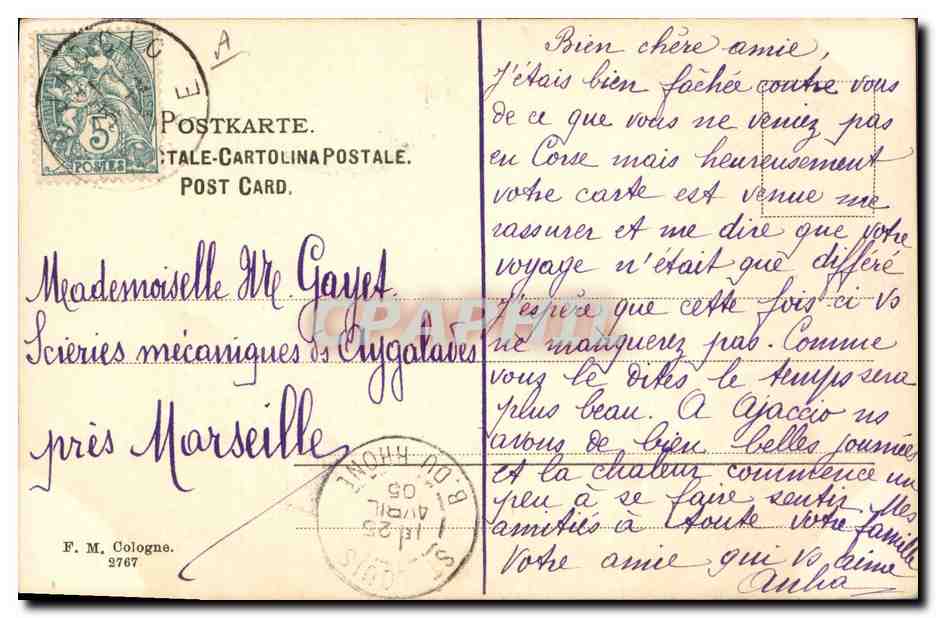 A
5
POSTES
POSTKARTE.
TALE-CARTOLINA POSTALE.
POST CARD.
Mademoiselle M. Gayet.
Scieries mécaniques ds Aygalades
près Marseille
ST LOUIS
B. DU RHONE
1E 25
AVRIL
05
F. M. Cologne.
2767
Bien chère amie,
J'étais bien fâchée contre vous
de ce que vous ne veniez pas
en Corse mais heureusement
votre carte est venue me
rassurer et me dire que votre
voyage n'était que différé
J'espère que cette fois-ci vs
ne manquerez pas. Comme
vous le dites le temps sera
plus beau. A Ajaccio ns
avons de bien belles journées
et la chaleur commence un
peu à se faire sentir. Mes
amitiés à toute votre famille
Votre amie qui vs aime
CPAPHIL